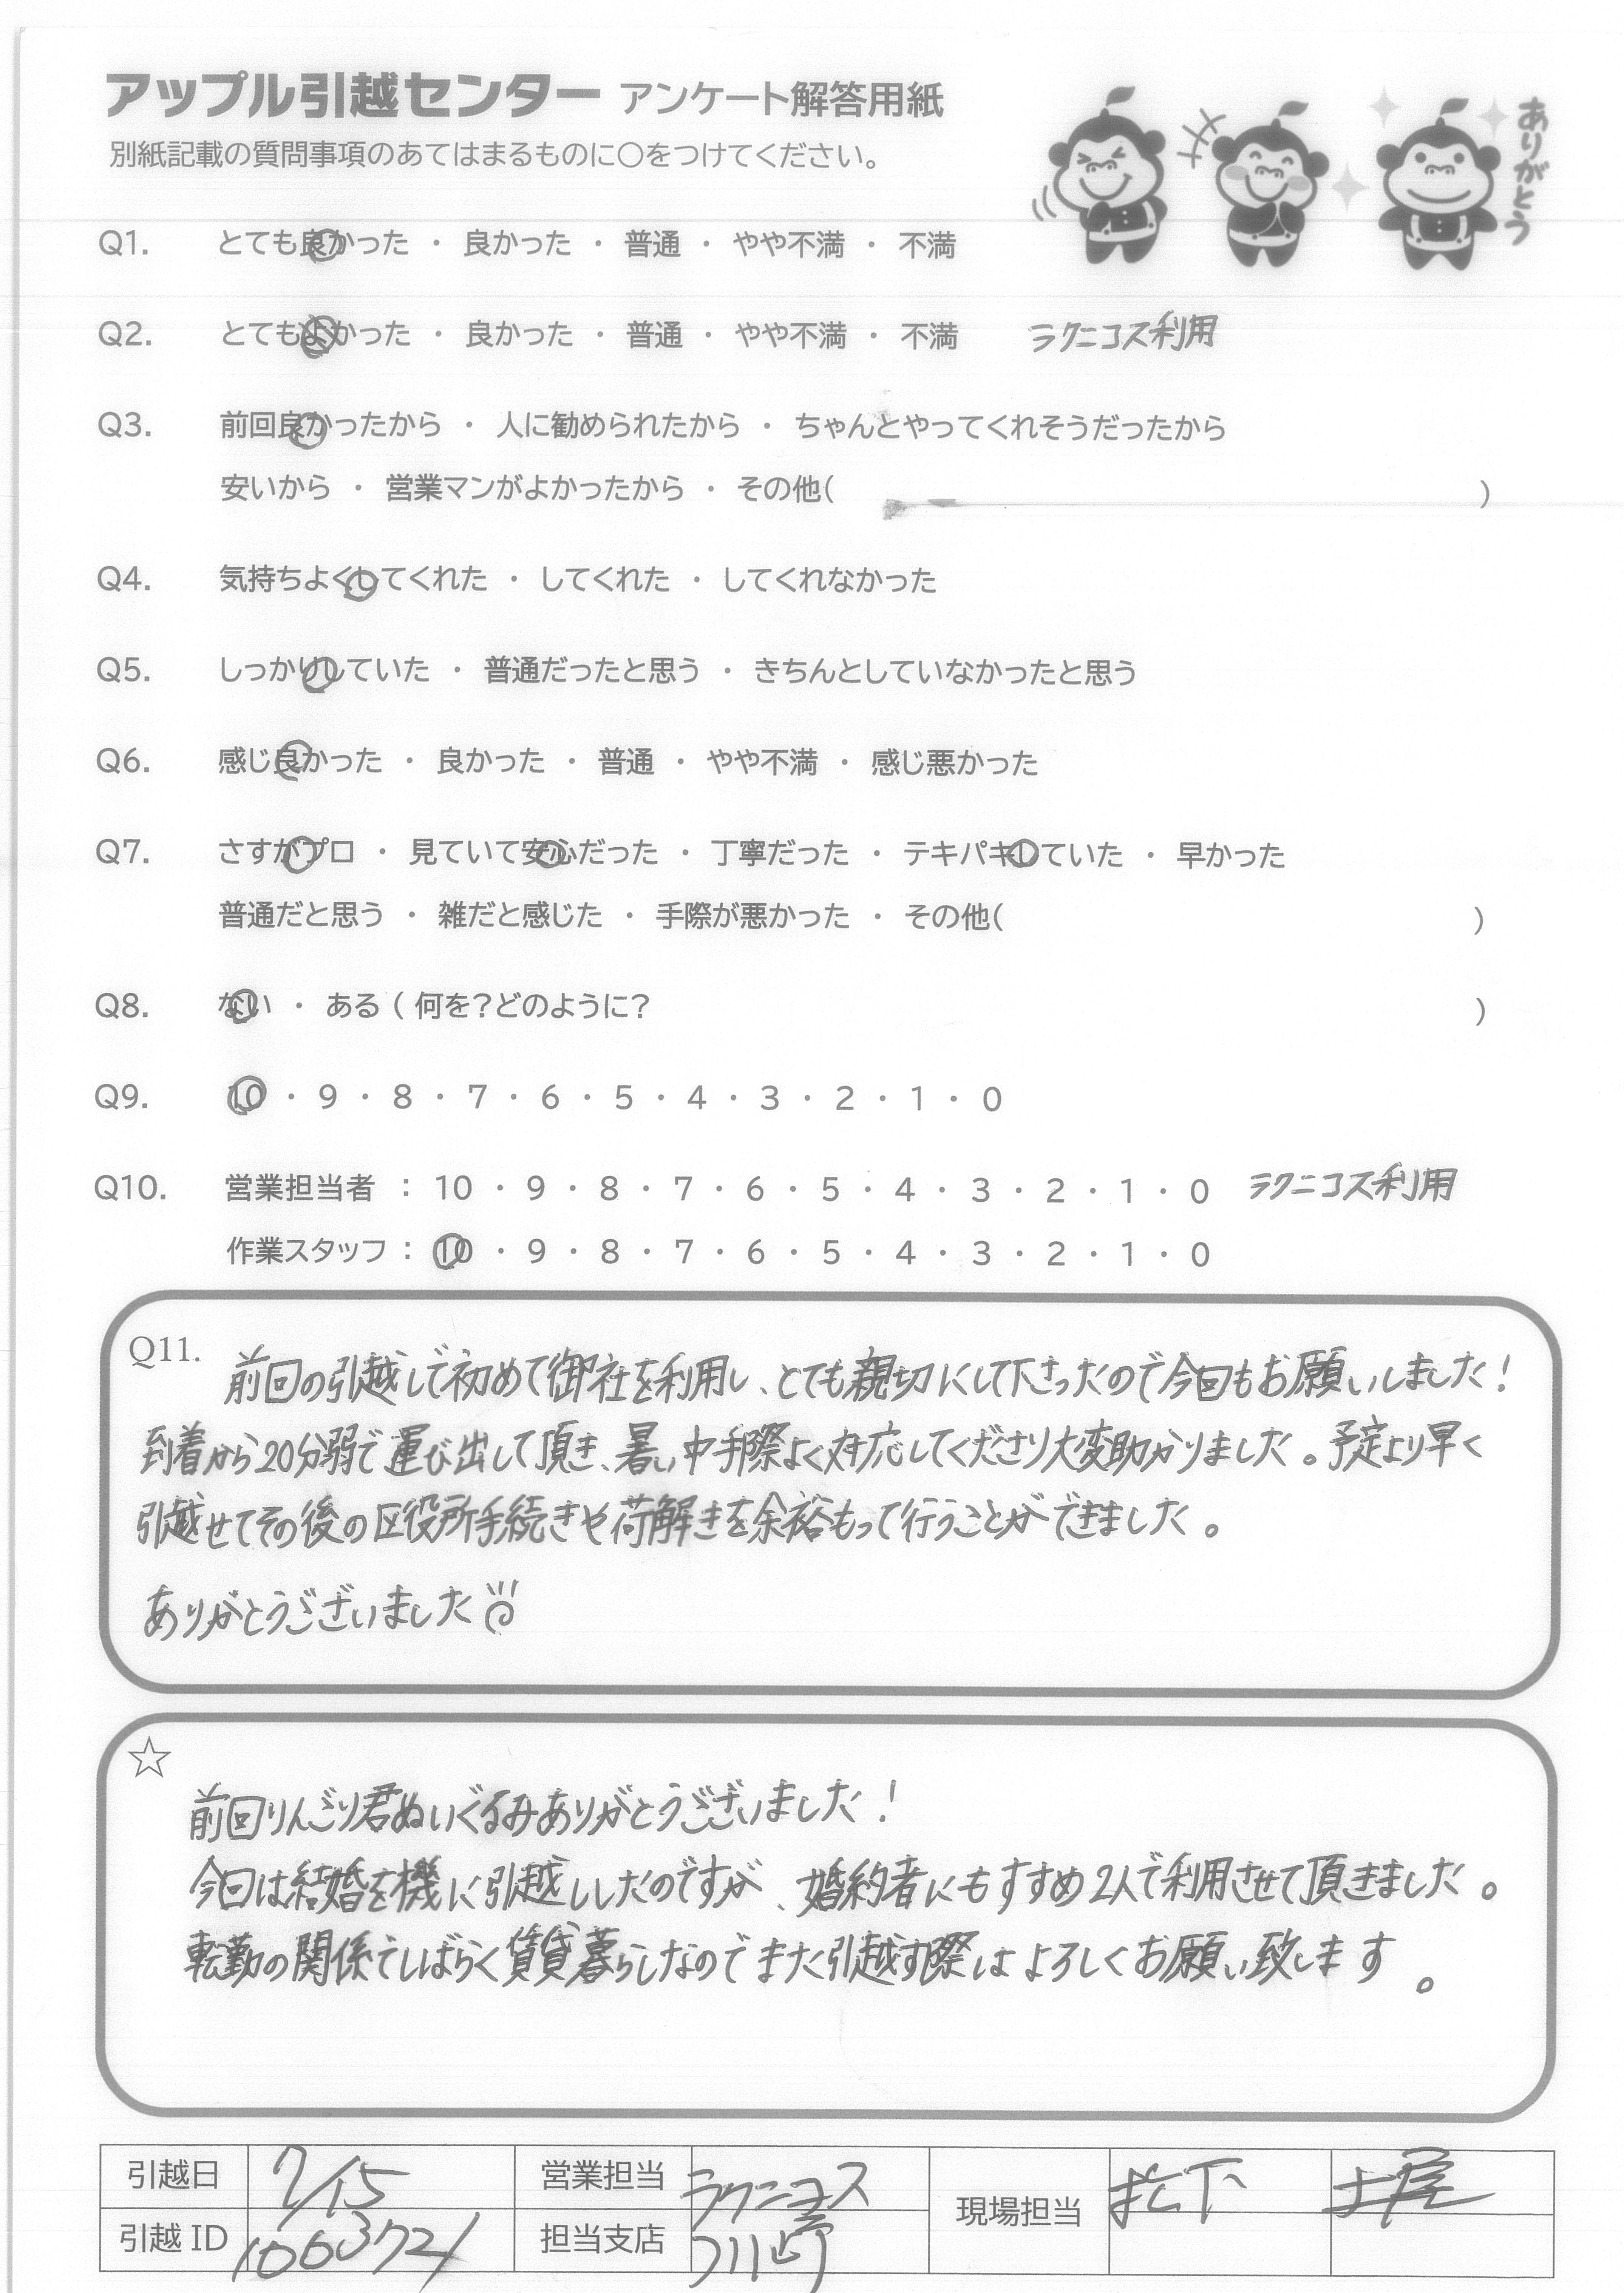 アップル引越センター アンケート解答用紙
別紙記載の質問事項のあてはまるものに○をつけてください。
ありがとう
Q1. とても良かった ・ 良かった ・ 普通 ・ やや不満 ・ 不満
Q2. とてもよかった ・ 良かった ・ 普通 ・ やや不満 ・ 不満 ラクニコス利用
Q3. 前回良かったから ・ 人に勧められたから ・ ちゃんとやってくれそうだったから
安いから ・ 営業マンがよかったから ・ その他( )
Q4. 気持ちよくしてくれた ・ してくれた ・ してくれなかった
Q5. しっかりしていた ・ 普通だったと思う ・ きちんとしていなかったと思う
Q6. 感じ良かった ・ 良かった ・ 普通 ・ やや不満 ・ 感じ悪かった
Q7. さすがプロ ・ 見ていて安心だった ・ 丁寧だった ・ テキパキしていた ・ 早かった
普通だと思う ・ 雑だと感じた ・ 手際が悪かった ・ その他( )
Q8. ない ・ ある ( 何を?どのように? )
Q9. 10 ・ 9 ・ 8 ・ 7 ・ 6 ・ 5 ・ 4 ・ 3 ・ 2 ・ 1 ・ 0
Q10. 営業担当者 : 10 ・ 9 ・ 8 ・ 7 ・ 6 ・ 5 ・ 4 ・ 3 ・ 2 ・ 1 ・ 0 ラクニコス利用
作業スタッフ : 10 ・ 9 ・ 8 ・ 7 ・ 6 ・ 5 ・ 4 ・ 3 ・ 2 ・ 1 ・ 0
Q11. 前回の引越しで初めて御社を利用し、とても親切にして下さったので今回もお願いしました!
到着から20分弱で運び出して頂き、暑い中手際よく対応してくださり大変助かりました。予定より早く
引越せてその後の区役所手続きや荷解きを余裕もって行うことができました。
ありがとうございました
☆
前回りんごり君ぬいぐるみありがとうございました!
今回は結婚を機に引越ししたのですが、婚約者にもすすめ2人で利用させて頂きました。
転勤の関係でしばらく賃貸暮らしなのでまた引越す際はよろしくお願い致します。
引越日 7/15 営業担当 ラクニコス 現場担当 松下 土屋
引越ID 1063721 担当支店 川崎